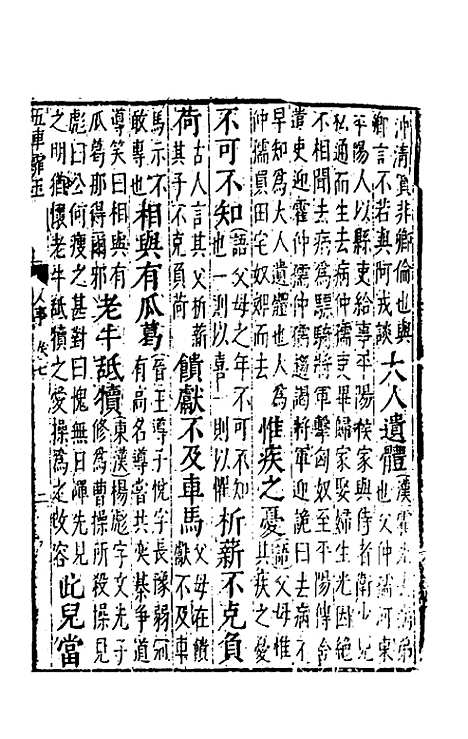 沖清賞非卿倫也與
卿言不若與阿戎談大人遺體漢霍去病弟
也父仲孺河東
平陽人以縣吏給事平陽侯家與侍者衛少兒
私通而生去病仲孺吏畢歸家娶婦生光因絕
不相聞去病為驃騎將軍擊匈奴至平陽傳舍
遣吏迎霍仲孺仲孺趨謁將軍迎跪曰去病不
早知為大人遺體也大人為
仲孺買田宅奴婢而去惟疾之憂語父母惟
其疾之憂
不可不知語父母之年不可不知
也一則以喜一則以懼析薪不克負
荷古人言其父析薪
其子不克負荷饋獻不及車馬父母在饋
獻不及車
馬示不
敢專也相與有瓜葛晉王導子悅字長豫弱冠
有高名導嘗共奕棊爭道
導笑曰相與有
瓜葛那得爾邪老牛舐犢東漢楊彪字文先子
修為曹操所殺操見
彪曰公何瘦之甚對曰愧無日磾先見
之明猶懷老牛舐犢之愛操為之改容此兒當
五車霏玉
人事 卷七 二